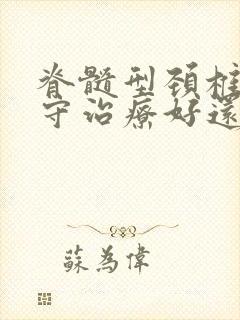 脊髓型頸椎
守治療好還
蘇為偉